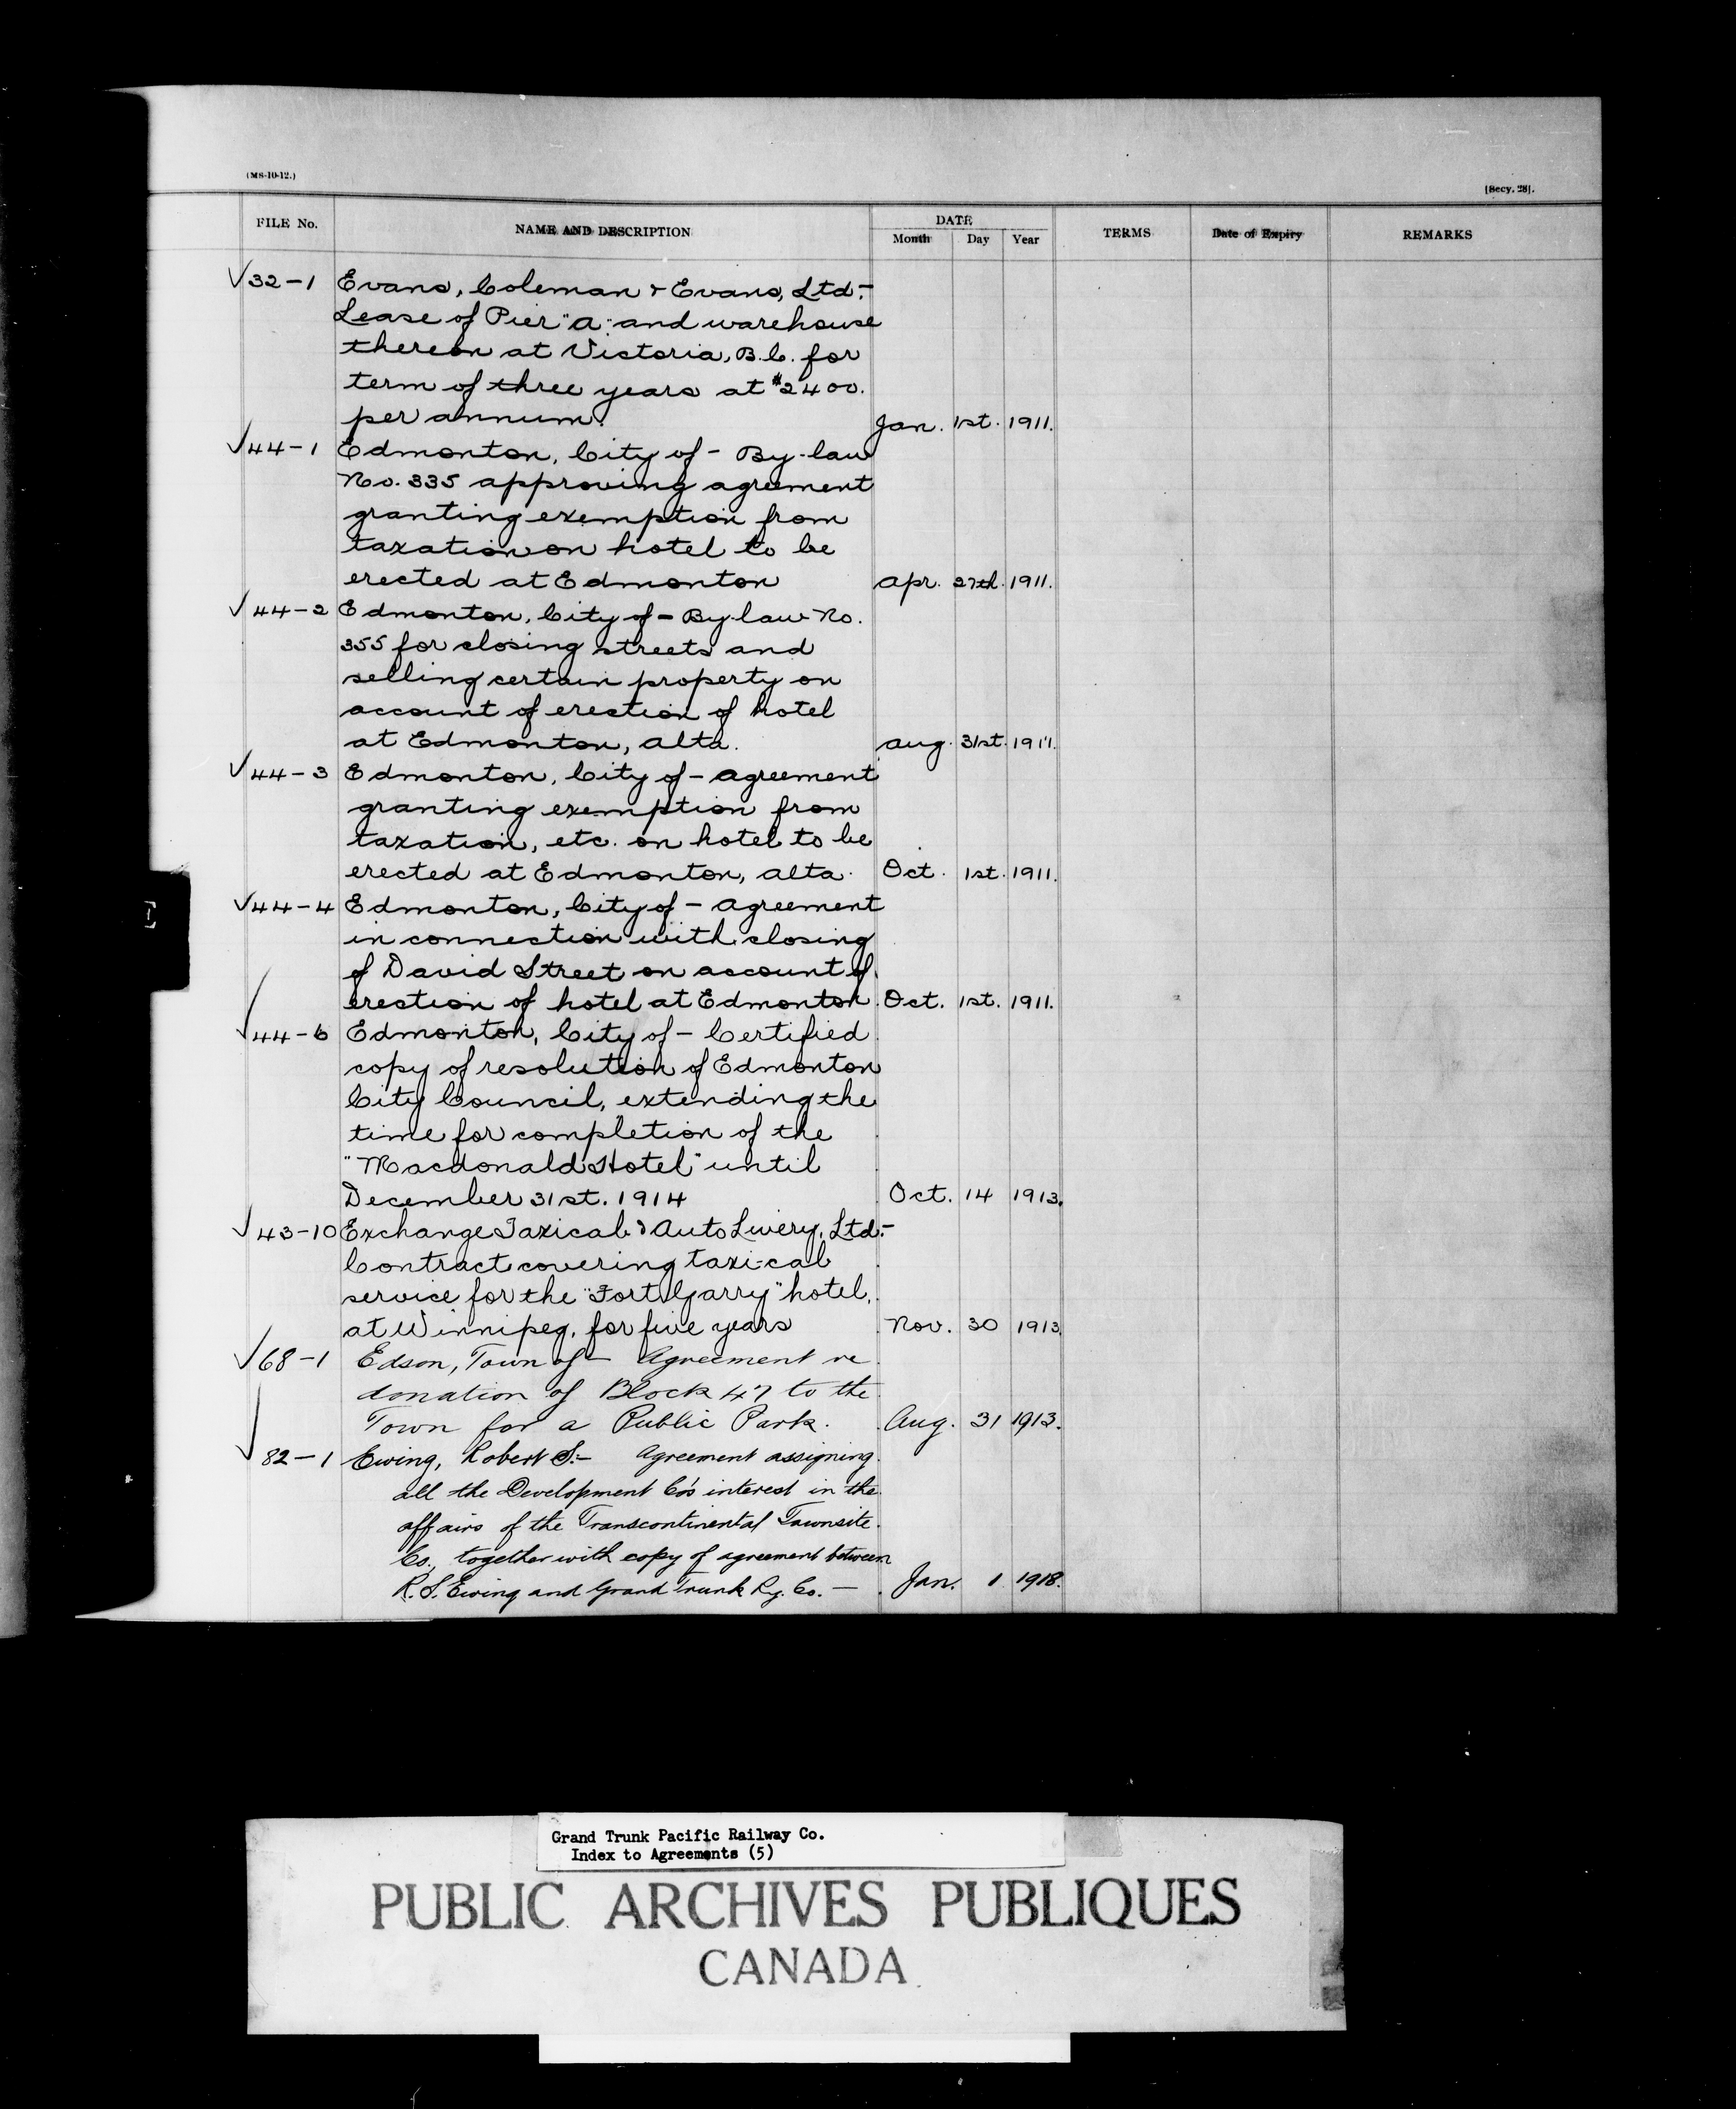 (MS-10-12.)
[Secy. 28].
FILE No. NAME AND DESCRIPTION DATE Month Day Year TERMS Date of Expiry REMARKS
√32-1 Evans, Coleman & Evans, Ltd.-
Lease of Pier "A" and warehouse
thereon at Victoria, B.C. for
term of three years at $2400.
per annum. Jan. 1st. 1911.
√44-1 Edmonton, City of - By-law
No. 335 approving agreement
granting exemption from
taxation on hotel to be
erected at Edmonton Apr. 27th. 1911.
√44-2 Edmonton, City of - By-law No.
355 for closing streets and
selling certain property on
account of erection of hotel
at Edmonton, Alta. Aug. 31st. 1911.
√44-3 Edmonton, City of - Agreement
granting exemption from
taxation, etc. on hotel to be
erected at Edmonton, Alta. Oct. 1st. 1911.
√44-4 Edmonton, City of - Agreement
in connection with closing
of David Street on account of
erection of hotel at Edmonton. Oct. 1st. 1911.
√44-6 Edmonton, City of - Certified
copy of resolution of Edmonton
City Council, extending the
time for completion of the
"Macdonald Hotel" until
December 31st. 1914 Oct. 14 1913.
√43-10 Exchange Taxicab & Auto Livery, Ltd.-
Contract covering taxi-cab
service for the "Fort Garry" hotel,
at Winnipeg, for five years Nov. 30 1913.
√68-1 Edson, Town of - Agreement re
donation of Block 47 to the
Town for a Public Park. Aug. 31 1913.
√82-1 Ewing, Robert S.- Agreement assigning
all the Development Co's interest in the
affairs of the Transcontinental Townsite
Co., together with copy of agreement between
R. S. Ewing and Grand Trunk Ry. Co. - Jan. 1 1918.
Grand Trunk Pacific Railway Co.
Index to Agreements (5)
PUBLIC ARCHIVES PUBLIQUES
CANADA